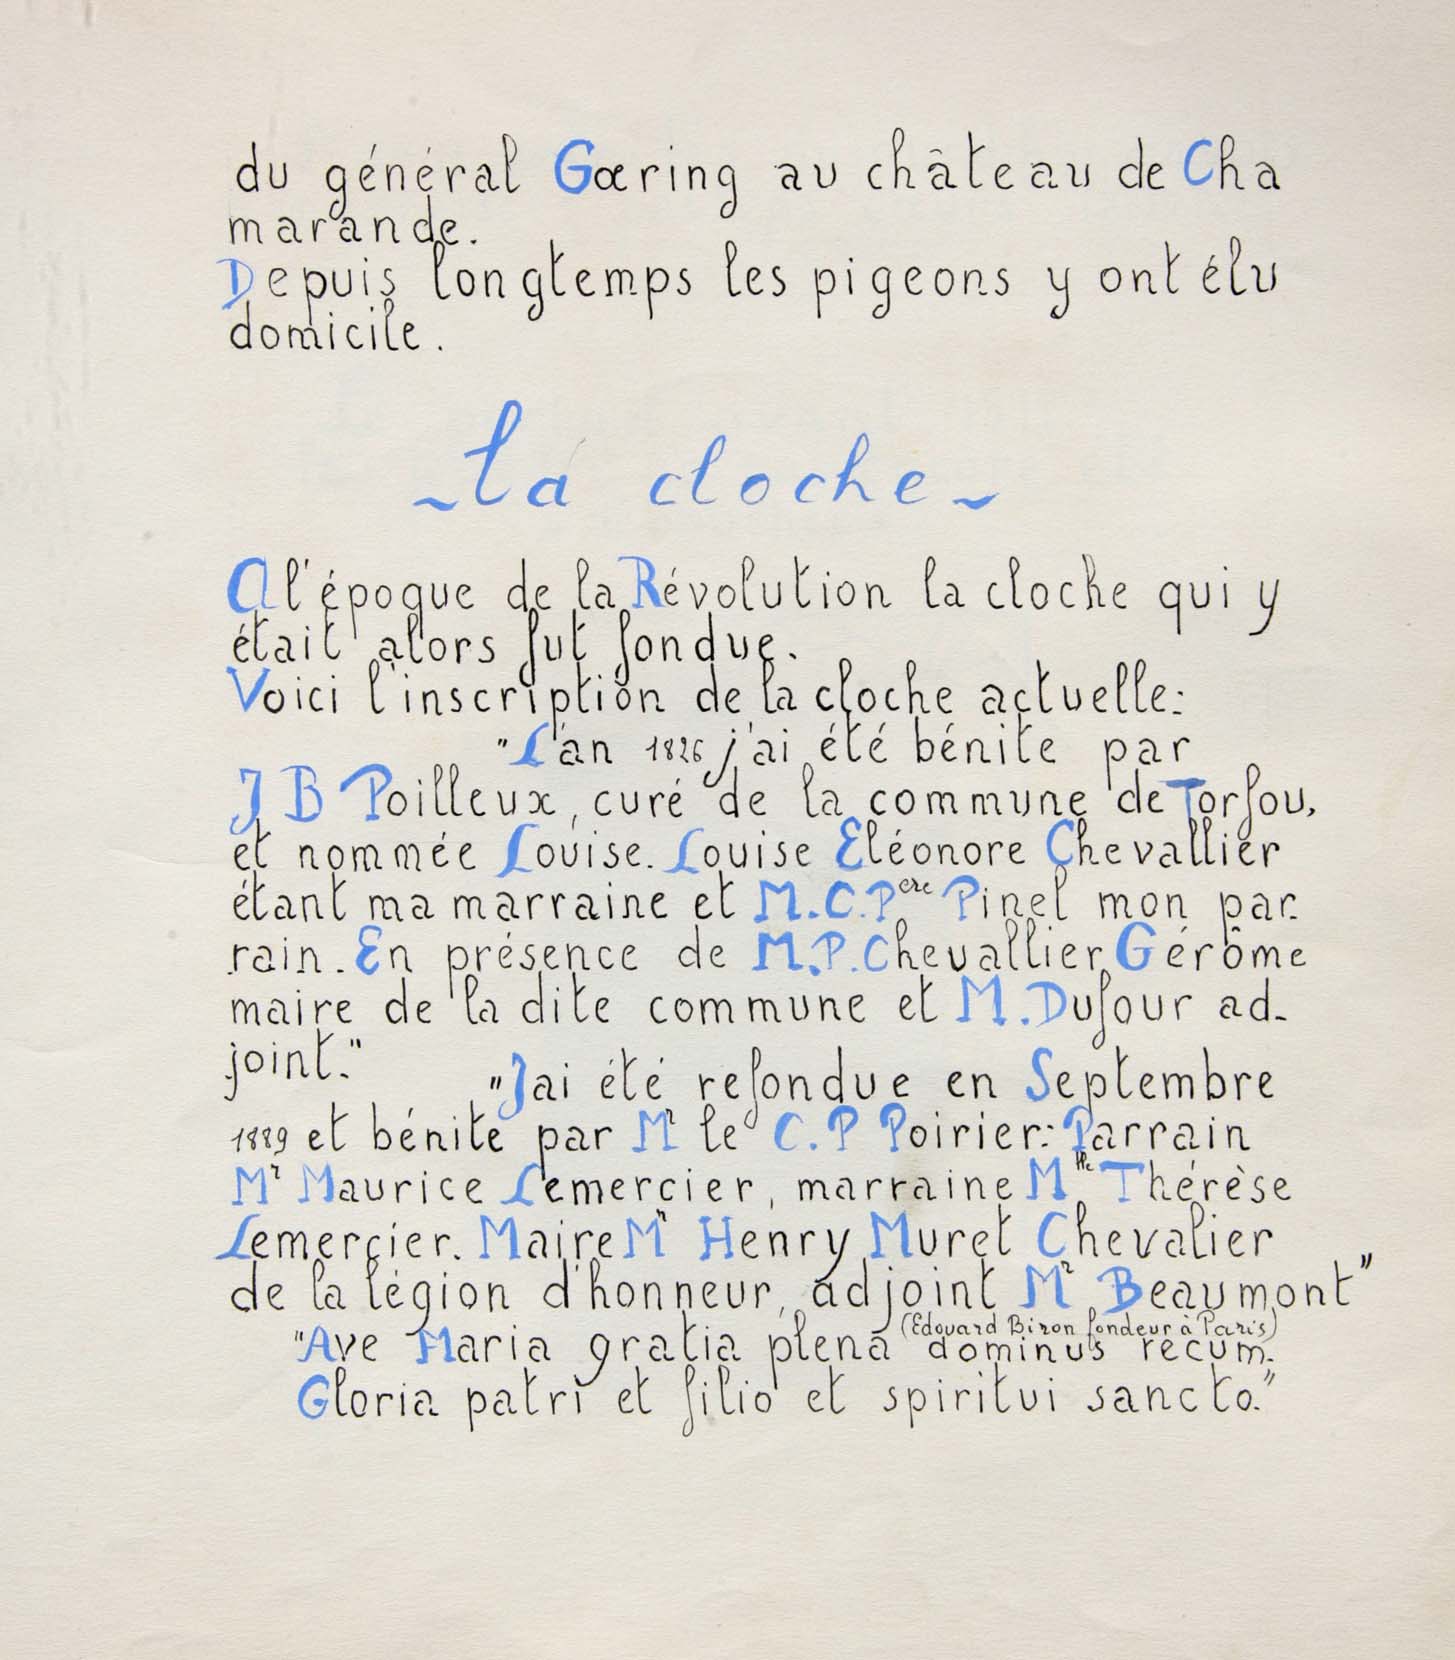 du général Gœring au château de Cha
marande.
Depuis longtemps les pigeons y ont élu
domicile.
~ La cloche ~
A l'époque de la Révolution la cloche qui y
était alors fut fondue.
Voici l'inscription de la cloche actuelle:
"L'an 1826 j'ai été bénite par
J B Poilleux, curé de la commune de Torfou,
et nommée Louise. Louise Eléonore Chevallier
étant ma marraine et M.C.Pere Pinel mon par-
rain. En présence de M.P. Chevallier Gérôme
maire de la dite commune et M. Dufour ad-
joint."
"Jai été refondue en Septembre
1889 et bénite par Mr le C.P Poirier: Parrain
Mr Maurice Lemercier, marraine Mlle Thérèse
Lemercier. Maire Mr Henry Muret Chevalier
de la légion d'honneur, adjoint Mr Beaumont"
(Edouard Biron fondeur à Paris)
"Ave Maria gratia plena dominus recum.
Gloria patri et filio et spiritui sancto."